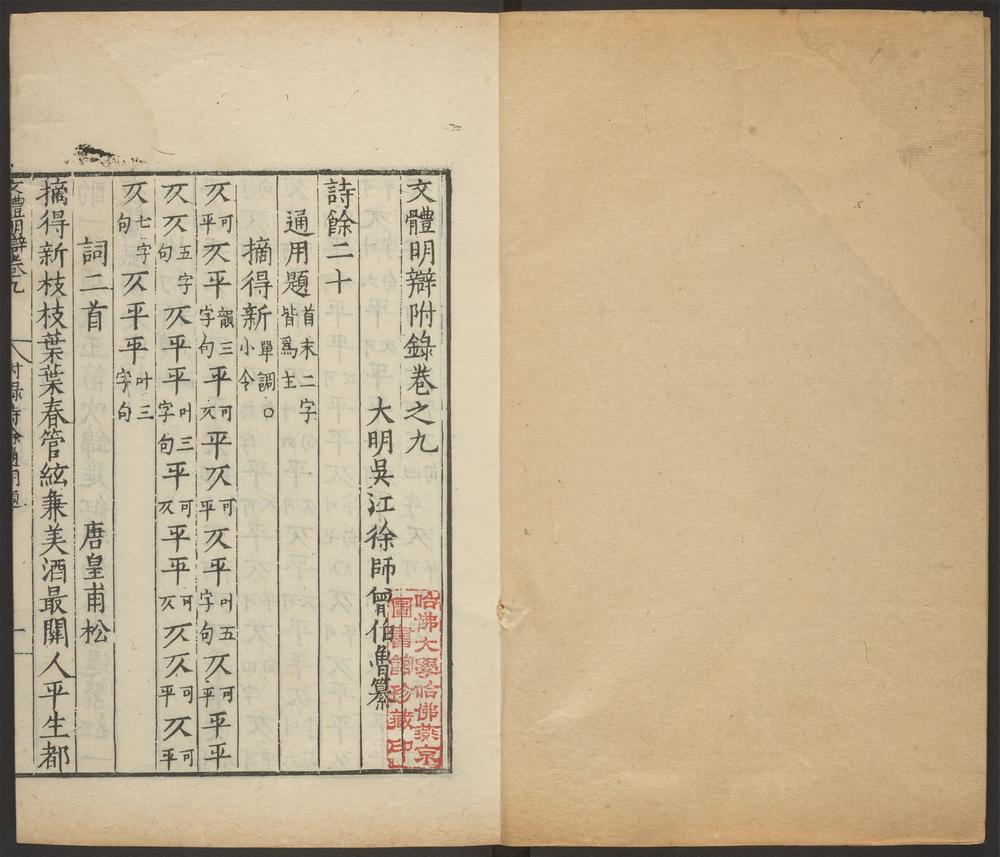 文體明辯附錄卷之九
大明吳江徐師曾伯魯纂
詩餘二十
通用題首末二字皆爲主
摘得新單調○小令
仄可平仄平韻三字句平可仄平仄可平仄平平叶五字句仄可平平平
仄仄五字句仄平平叶三字句平可仄平平可仄仄仄可平仄可平
仄七字句仄平平叶三字句
詞二首 唐皇甫松
摘得新枝枝葉葉春管絃兼美酒最關人平生都
文體明辯卷九 附錄詩餘通用題 一
哈佛大學哈佛燕京
圖書館珍藏印